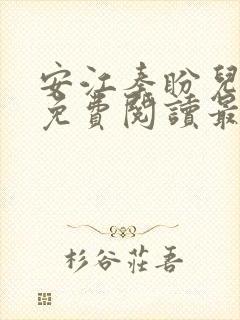 安江秦盼兒
免費閱讀最
杉谷莊吾